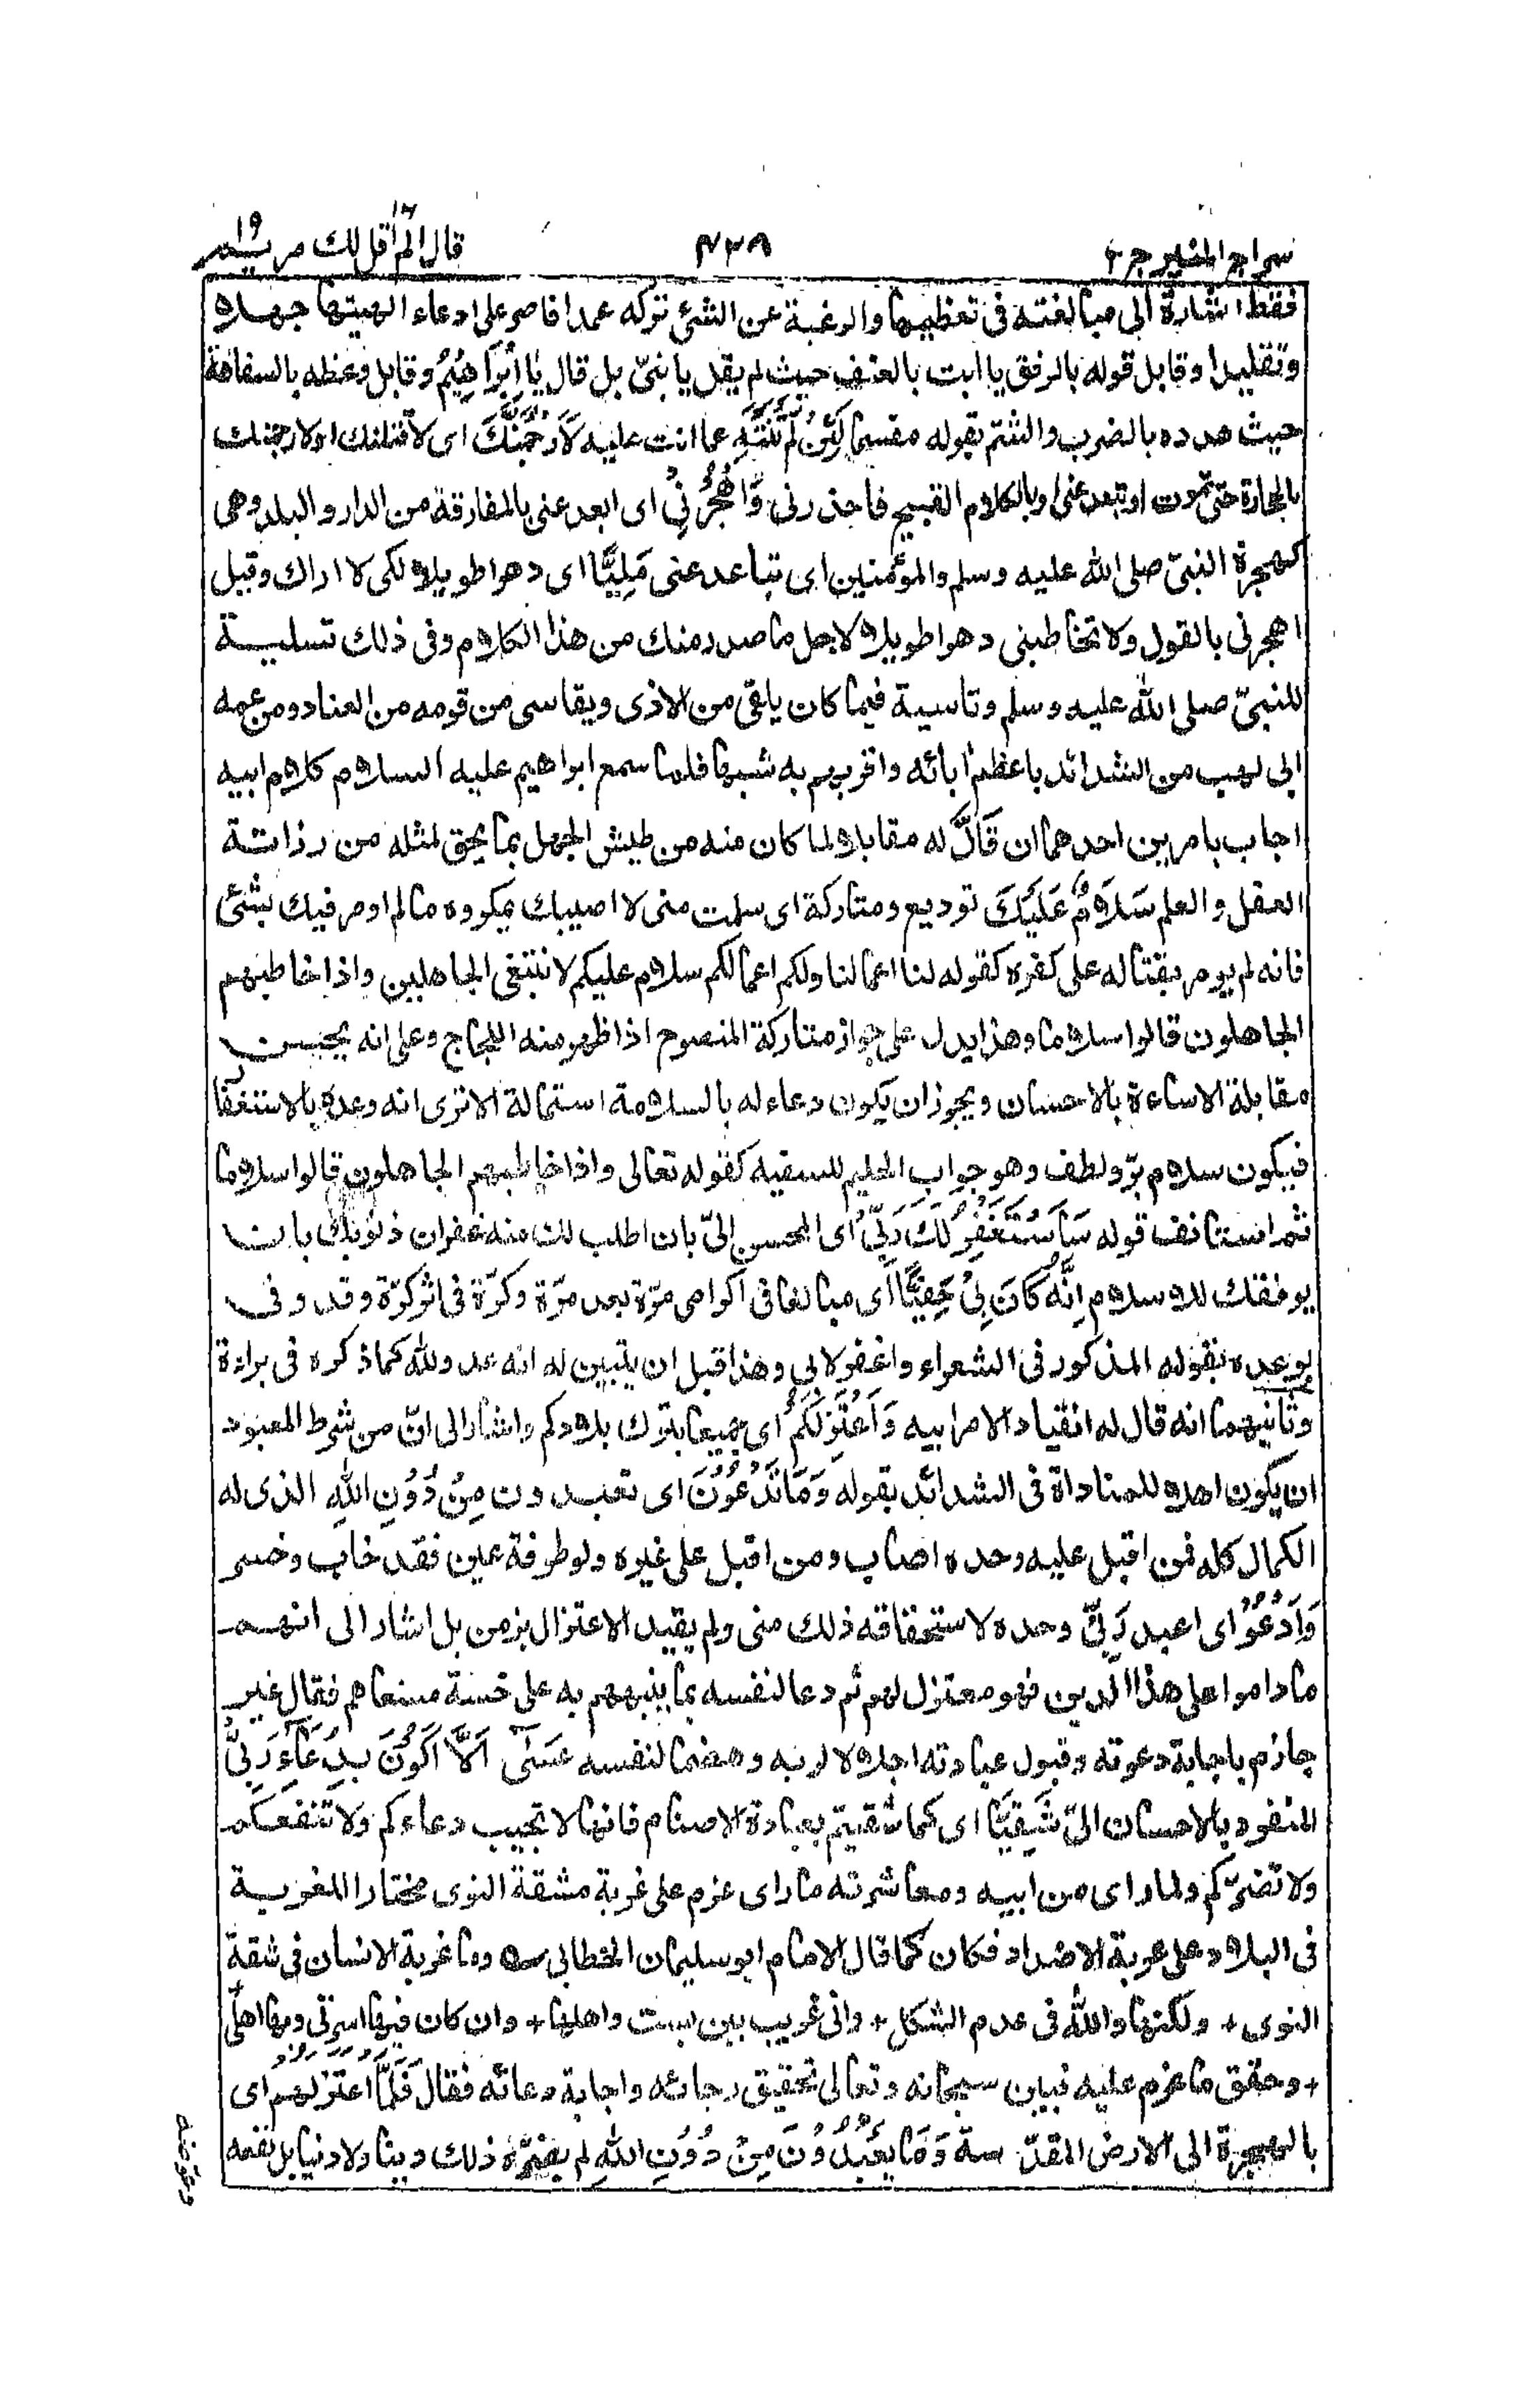 سراج المنير جز ٢
٤٣٨
قال الم اقل لك ١٦ مريم ١٩
فقط اشارة الى مبالغته فى تعظيمها والرغبة عن الشئ تركه عمدا فاصر على ادعاء الهيتها جهلا
وتقليدا وقابل قوله بالرفق يا ابت بالعنف حيث لم يقل يا بنىّ بل قال يَا اِبْرَاهِيْمُ وقابل وعظه بالسفاهة
حيث هدده بالضرب والشتم بقوله مقسما لَئِنْ لَّمْ تَنْتَهِ عما انت عليه لَاَرْجُمَنَّكَ اى لاقتلنك او لارجمنك
بالحجارة حتى تموت او تبعد عنى او بالكلام القبيح فاحذرنى وَاهْجُرْنِيْ اى ابعد عنى بالمفارقة من الدار والبلد وهى
كهجرة النبىّ صلى الله عليه وسلم والمؤمنين اى تباعد عنى مَلِيًّا اى دهرا طويلا لكى لا اراك وقيل
اهجرنى بالقول ولا تخاطبنى دهرا طويلا لاجل ما صدر منك من هذا الكلام وفى ذلك تسلية
للنبىّ صلى الله عليه وسلم وتاسية فيما كان يلقى من الاذى ويقاسى من قومه من العناد ومن عمه
ابى لهب من الشدائد باعظم ابائه واقربهم به شبها فلما سمع ابراهيم عليه السلام كلام ابيه
اجاب بامرين احدهما ان قَالَ له مقابلا لما كان منه من طيش الجهل بما يحق لمثله من رزانة
العقل والعلم سَلَامٌ عَلَيْكَ توديع ومتاركة اى سلمت منى لا اصيبك بمكروه ما لم اومر فيك بشئ
فانه لم يومر بقتاله على كفره كقوله لنا اعمالنا ولكم اعمالكم سلام عليكم لا نبتغى الجاهلين واذا خاطبهم
الجاهلون قالوا سلاما وهذا يدل على جواز متاركة المنصوح اذا ظهر منه اللجاج وعلى انه يحسن
مقابلة الاساءة بالاحسان ويجوز ان يكون دعاء له بالسلامة استمالة الا ترى انه وعده بالاستغفار
فيكون سلام برّ ولطف وهو جواب الحليم للسفيه كقوله تعالى واذا خاطبهم الجاهلون قالوا سلاما
ثم استانف قوله سَاَسْتَغْفِرُ لَكَ رَبِّيْ اى المحسن الىّ بان اطلب لك منه غفران ذنوبك بان
يوفقك للاسلام اِنَّهٗ كَانَ بِيْ حَفِيًّا اى مبالغا فى اكرامى مرّة بعد مرّة وكرّة فى اثر كرّة وقد وفى
بوعده بقوله المذكور فى الشعراء واغفر لابى وهذا قبل ان يتبين له انه عدو لله كما ذكره فى براءة
وثانيهما انه قال له انقيادا لامر ابيه وَاَعْتَزِلُكُمْ اى جميعا بترك بلادكم واشار الى انّ من شرط المعبود
ان يكون اهلا للمناداة فى الشدائد بقوله وَمَا تَدْعُوْنَ اى تعبدون مِنْ دُوْنِ اللهِ الذى له
الكمال كله فمن اقبل عليه وحده اصاب ومن اقبل على غيره ولو طرفة عين فقد خاب وخسر
وَاَدْعُوْ اى اعبد رَبِّيْ وحده لاستحقاقه ذلك منى ولم يقيد الاعتزال بزمن بل اشار الى انهم
ما داموا على هذا الدين فهو معتزل لهم ثم دعا لنفسه بما ينبههم به على خسة مسعاهم فقال غير
جازم باجابة دعوته وقبول عبادته اجلالا لربه وهضما لنفسه عَسٰٓى اَلَّا اَكُوْنَ بِدُعَآءِ رَبِّيْ
المنفرد بالاحسان الىّ شَقِيًّا اى كما شقيتم بعبادة الاصنام فانها لا تجيب دعاءكم ولا تنفعكم
ولا تضرّكم ولما راى من ابيه ومعاشرته ما راى عزم على غربة مشقة النوى مختارا للغربة
فى البلاد على غربة الاضداد فكان كما قال الامام ابو سليمان الخطابى ؎ وما غربة الانسان فى شقة
النوى + ولكنها والله فى عدم الشكل + وانى غريب بين بست واهلها + وان كان فيها اسرتى وبها اهلى
+ وحقق ما عزم عليه فبين سبحانه وتعالى تحقيق رجائه واجابة دعائه فقال فَلَمَّا اعْتَزَلَهُمْ اى
بالهجرة الى الارض المقدّسة وَمَا يَعْبُدُوْنَ مِنْ دُوْنِ اللهِ لم يضرّه ذلك دينا ولا دنيا بل نفعه
وعوّضه